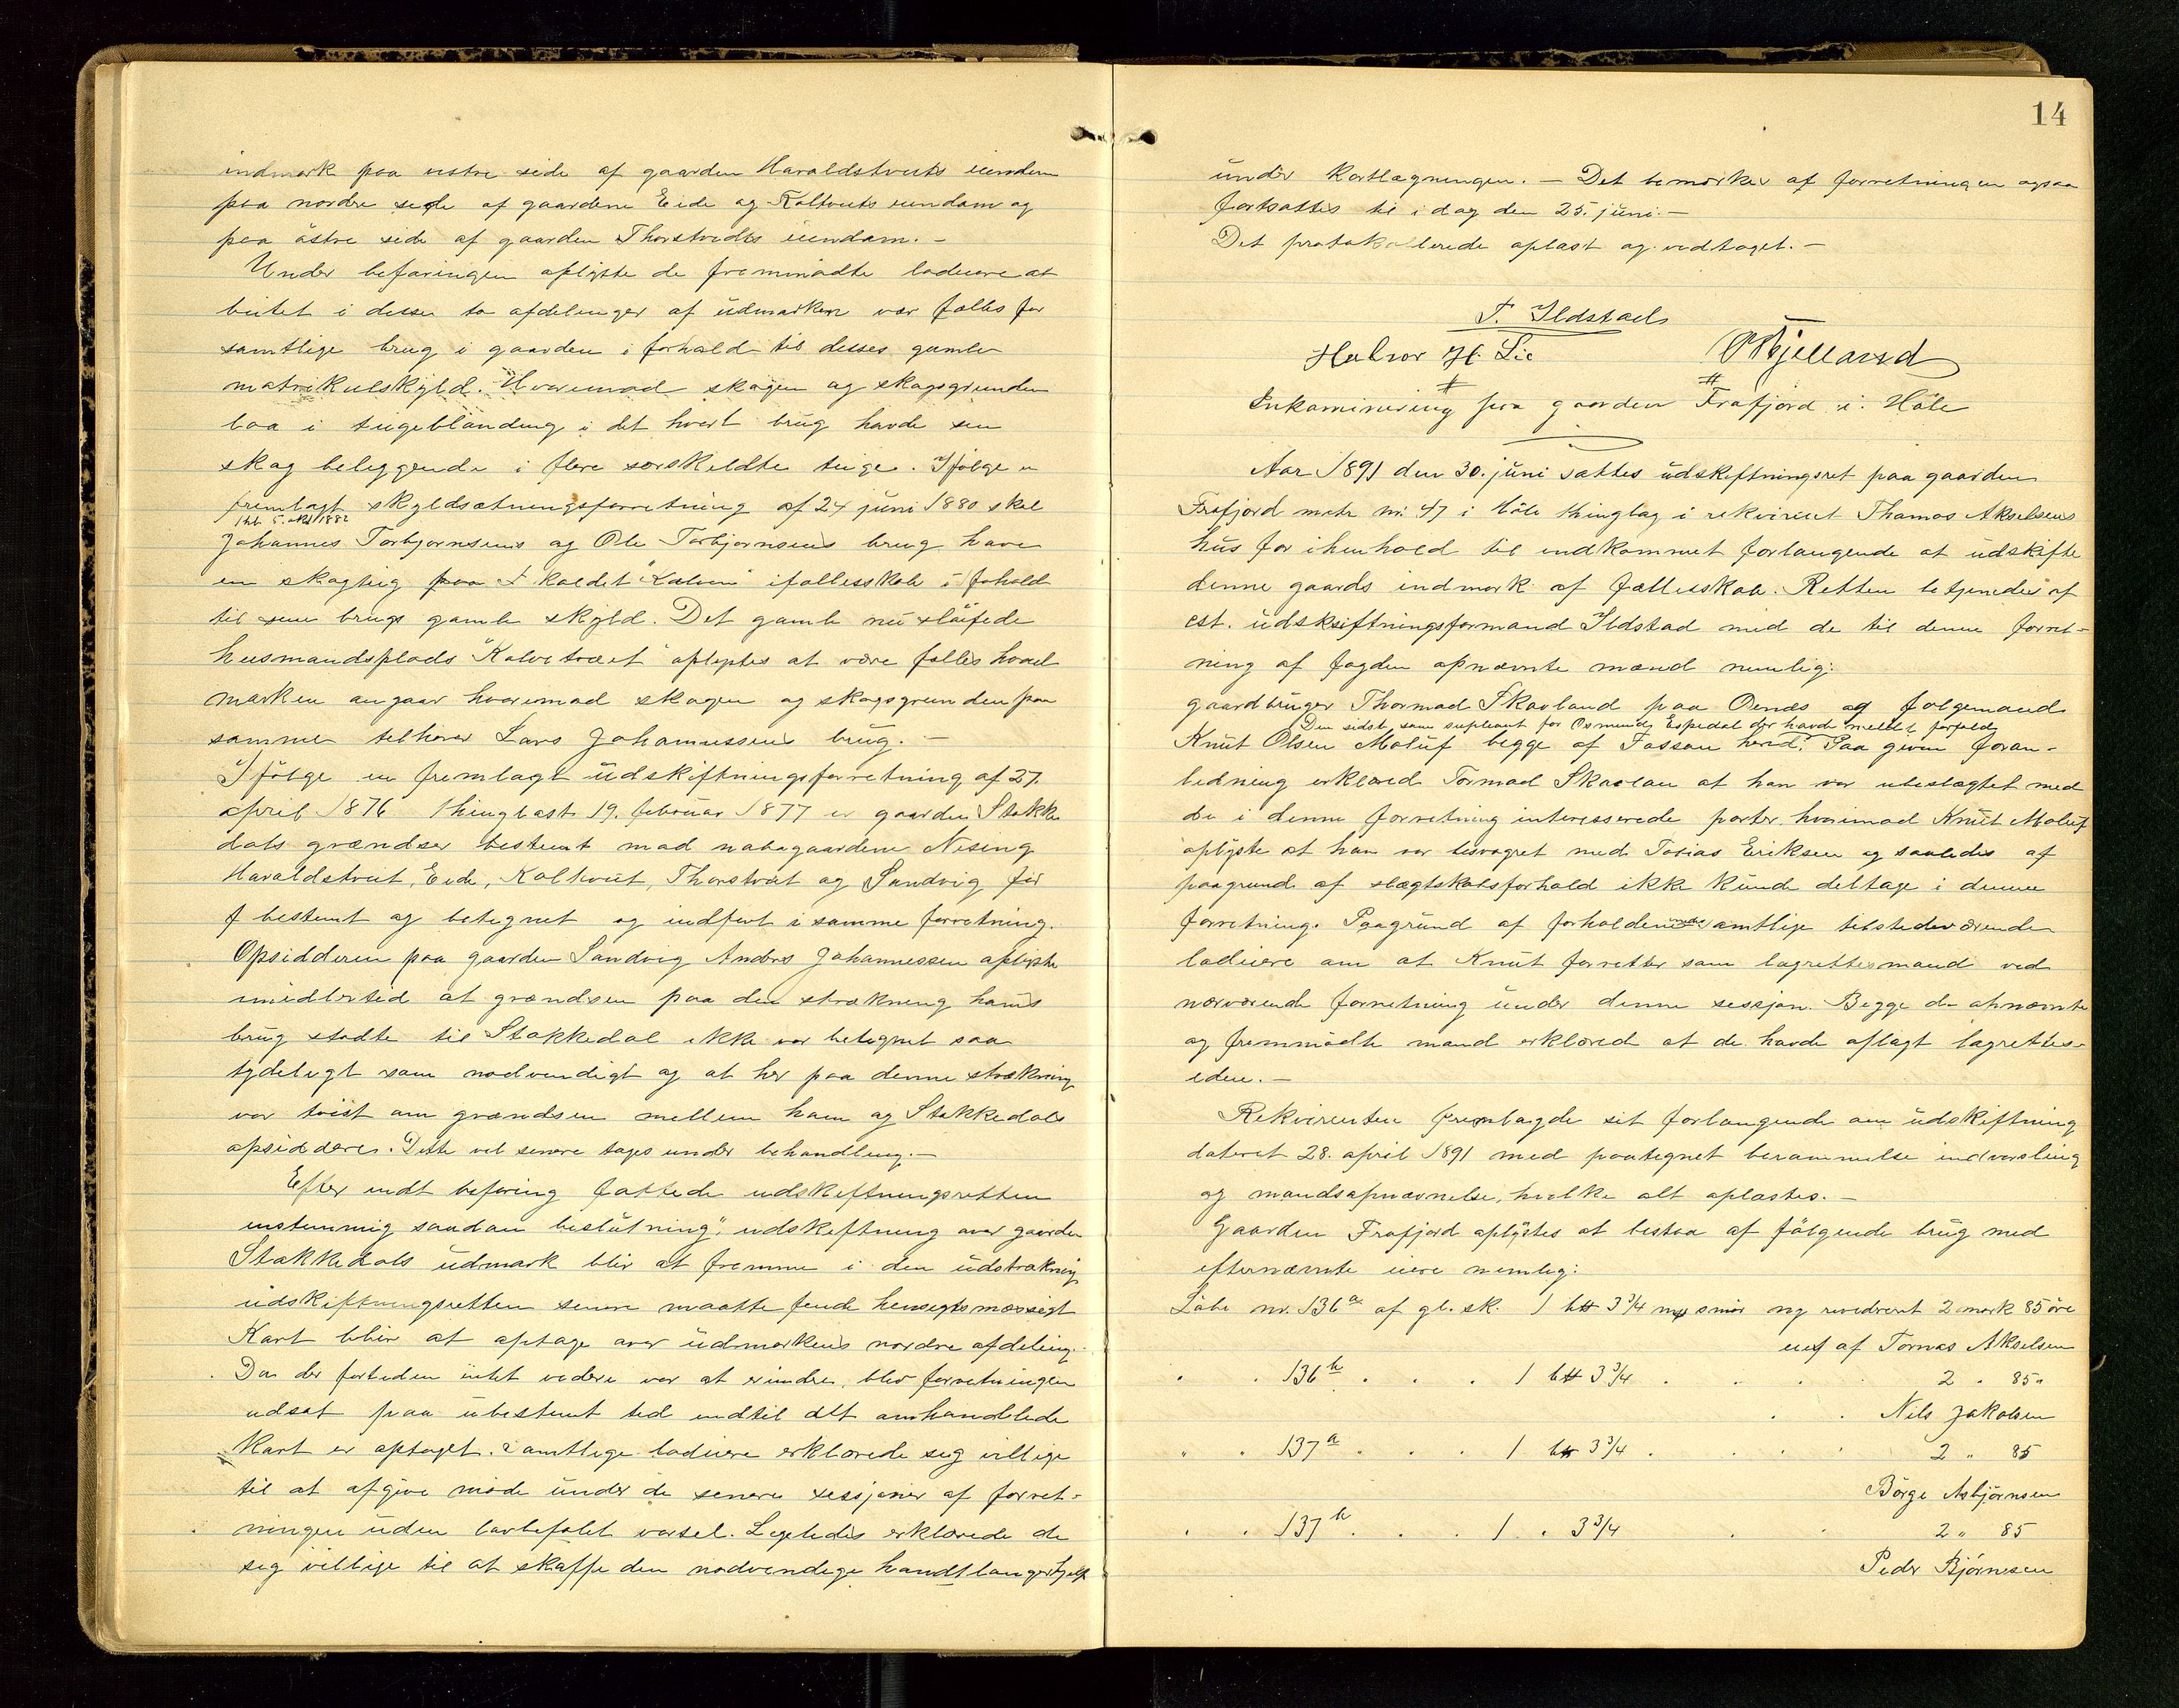 indmark paa vestre side af gaarden Haraldstveits eiendom
paa nordre side af gaardene Eide og Koltveits eiendom og
paa östre side af gaarden Thorstvedts eiendom. -
Under befaringen oplyste de fremmödte lodeiere at
beitet i disse to afdelinger af udmarken var fælles for
samtlige brug i gaarden i forhold til disses gamle
matrikulskyld. Hvorimod skogen og skogsgrunden
laa i teigeblanding i det hvert brug havde sin
skog beliggende i flere særskildte teige. Ifölge en
fremlagt skyldsætningsforretning af 24 juni 1880 skal
thl. 5. okt 1882
Johannes Torbjornsens og Ole Torbjornsens brug have
en skogteig kaldet "Kalven" i fællesskab i fohold
til sine brugs gamle skyld. Det gamle nu slöifede
husmandsplads "Kalvetræet" oplystes at være fælles hvad
marken angaar hvorimod skogen og skogsgrunden paa
samme tilhörer Lars Johannessens brug. -
Ifölge en fremlagt udskiftningsforretning af 27.
april 1876 thinglæst 19. februar 1877 er gaarden Stakke
dals grændser bestemt mod nabogaardene Nesing
Haraldstveit, Eide, Koltveit, Thorstveit og Sandvig
bestemt og betegnet og indfört i samme forretning.
Opsidderen paa gaarden Sandvig Anders Johannessen oplyste
imidlertid at grændsen paa den strækning hans
brug stödte til Stakkedal ikke var betegnet saa
tydeligt som nödvendigt og at her paa denne strækning
var tvist om grændsen mellem ham og Stakkedals
opsiddere. Dette vil senere tages under behandling. -
Efter endt befaring fattede udskiftningsretten
enstemmig saadan beslutning": udskiftning over gaarden
Stakkedals udmark blir at fremme i den udstrækning
udskiftningsretten senere maatte finde hensigtsmæssigt
Kart blir at optage over udmarkens nordre afdeling.
Da der forteden intet videre var at erindre, blev forretningen
udsat paa ubestemt tid indtil det omhandlede
kart er optaget. Samtlige lodeiere erklærede sig villige
til at afgive möde under de senere sessjoner af forret-
ningen uden lovbefalet varsel. Ligeledes erklærede de
sig villige til at skaffe den nødvendige handtlangerhjelp
14
under kartlægningen. - Det bemærkes af forretningen ogsaa
fortsattes til i dag den 25. juni. -
Det protokollerede oplæst og vedtaget. -
T. Ildstad
Halvor H. Lie
O Kjelland
#
#
Inkaminering paa gaarden Frafjord i Höle
Aar 1891 den 30. juni sættes udskiftningsret paa gaarden
Frafjord matr nr. 47 i Höle thinglag i rekvirent Thomas Akselsens
hus for i henhold til indkommet forlangende at udskifte
denne gaards indmark af fællesskab. Retten betjenedes af
cst. udskiftningsformand Ildstad med de til denne forret-
ning af fogden opnævnte mænd nemlig:
gaardbruger Thormod Skavland paa Oenæs og folgemand
Den sidste som supleant for Osmund Espedal der havde meldt forfald
Knut Olsen Moluf begge af Fossan herred. Paa given foran-
ledning erklæred Tormod Skavlan at han var ubeslægtet med
de i denne forretning interesserede parter. hvorimod Knut Moluf
oplyste at han var besvogret med Tobias Eriksen og saaledes af
paagrund af slægtskabsforhold ikke kunde deltage i denne
forretning. Paagrund af forholdene samtlige tilstedeværende
lodeiere om at Knut forretter som lagrettesmand ved
nærværende forretning under denne sessjon. Begge de opnævnte
og fremmödte mænd erklæred at de havde aflagt lagrettes-
eden. -
Rekvirenten fremlagde sit forlangende om udskiftning
dateret 28. april 1891 med paategnet berammelse indvarsling
og mandsopnævnelse, hvilke alt oplæstes. -
Gaarden Frafjord oplystes at bestaa af fölgende brug med
efternævnte eiere nemlig:
Löbe nr. 136a af gl. sk. 1 b# 3 3/4 mp smör og revideret 2 mark 85 öre
eies af Tomas Akselsen
" " 136b . . . 1 b# 3 3/4 . . . 2 " 85 "
. . Nils Jakobsen
" " 137a . . . 1 b# 3 3/4 . . . 2 " 85
Börge Asbjörnsen
" " 137b . . . 1 " 3 3/4 . . 2 " 85
Peder Björnsen